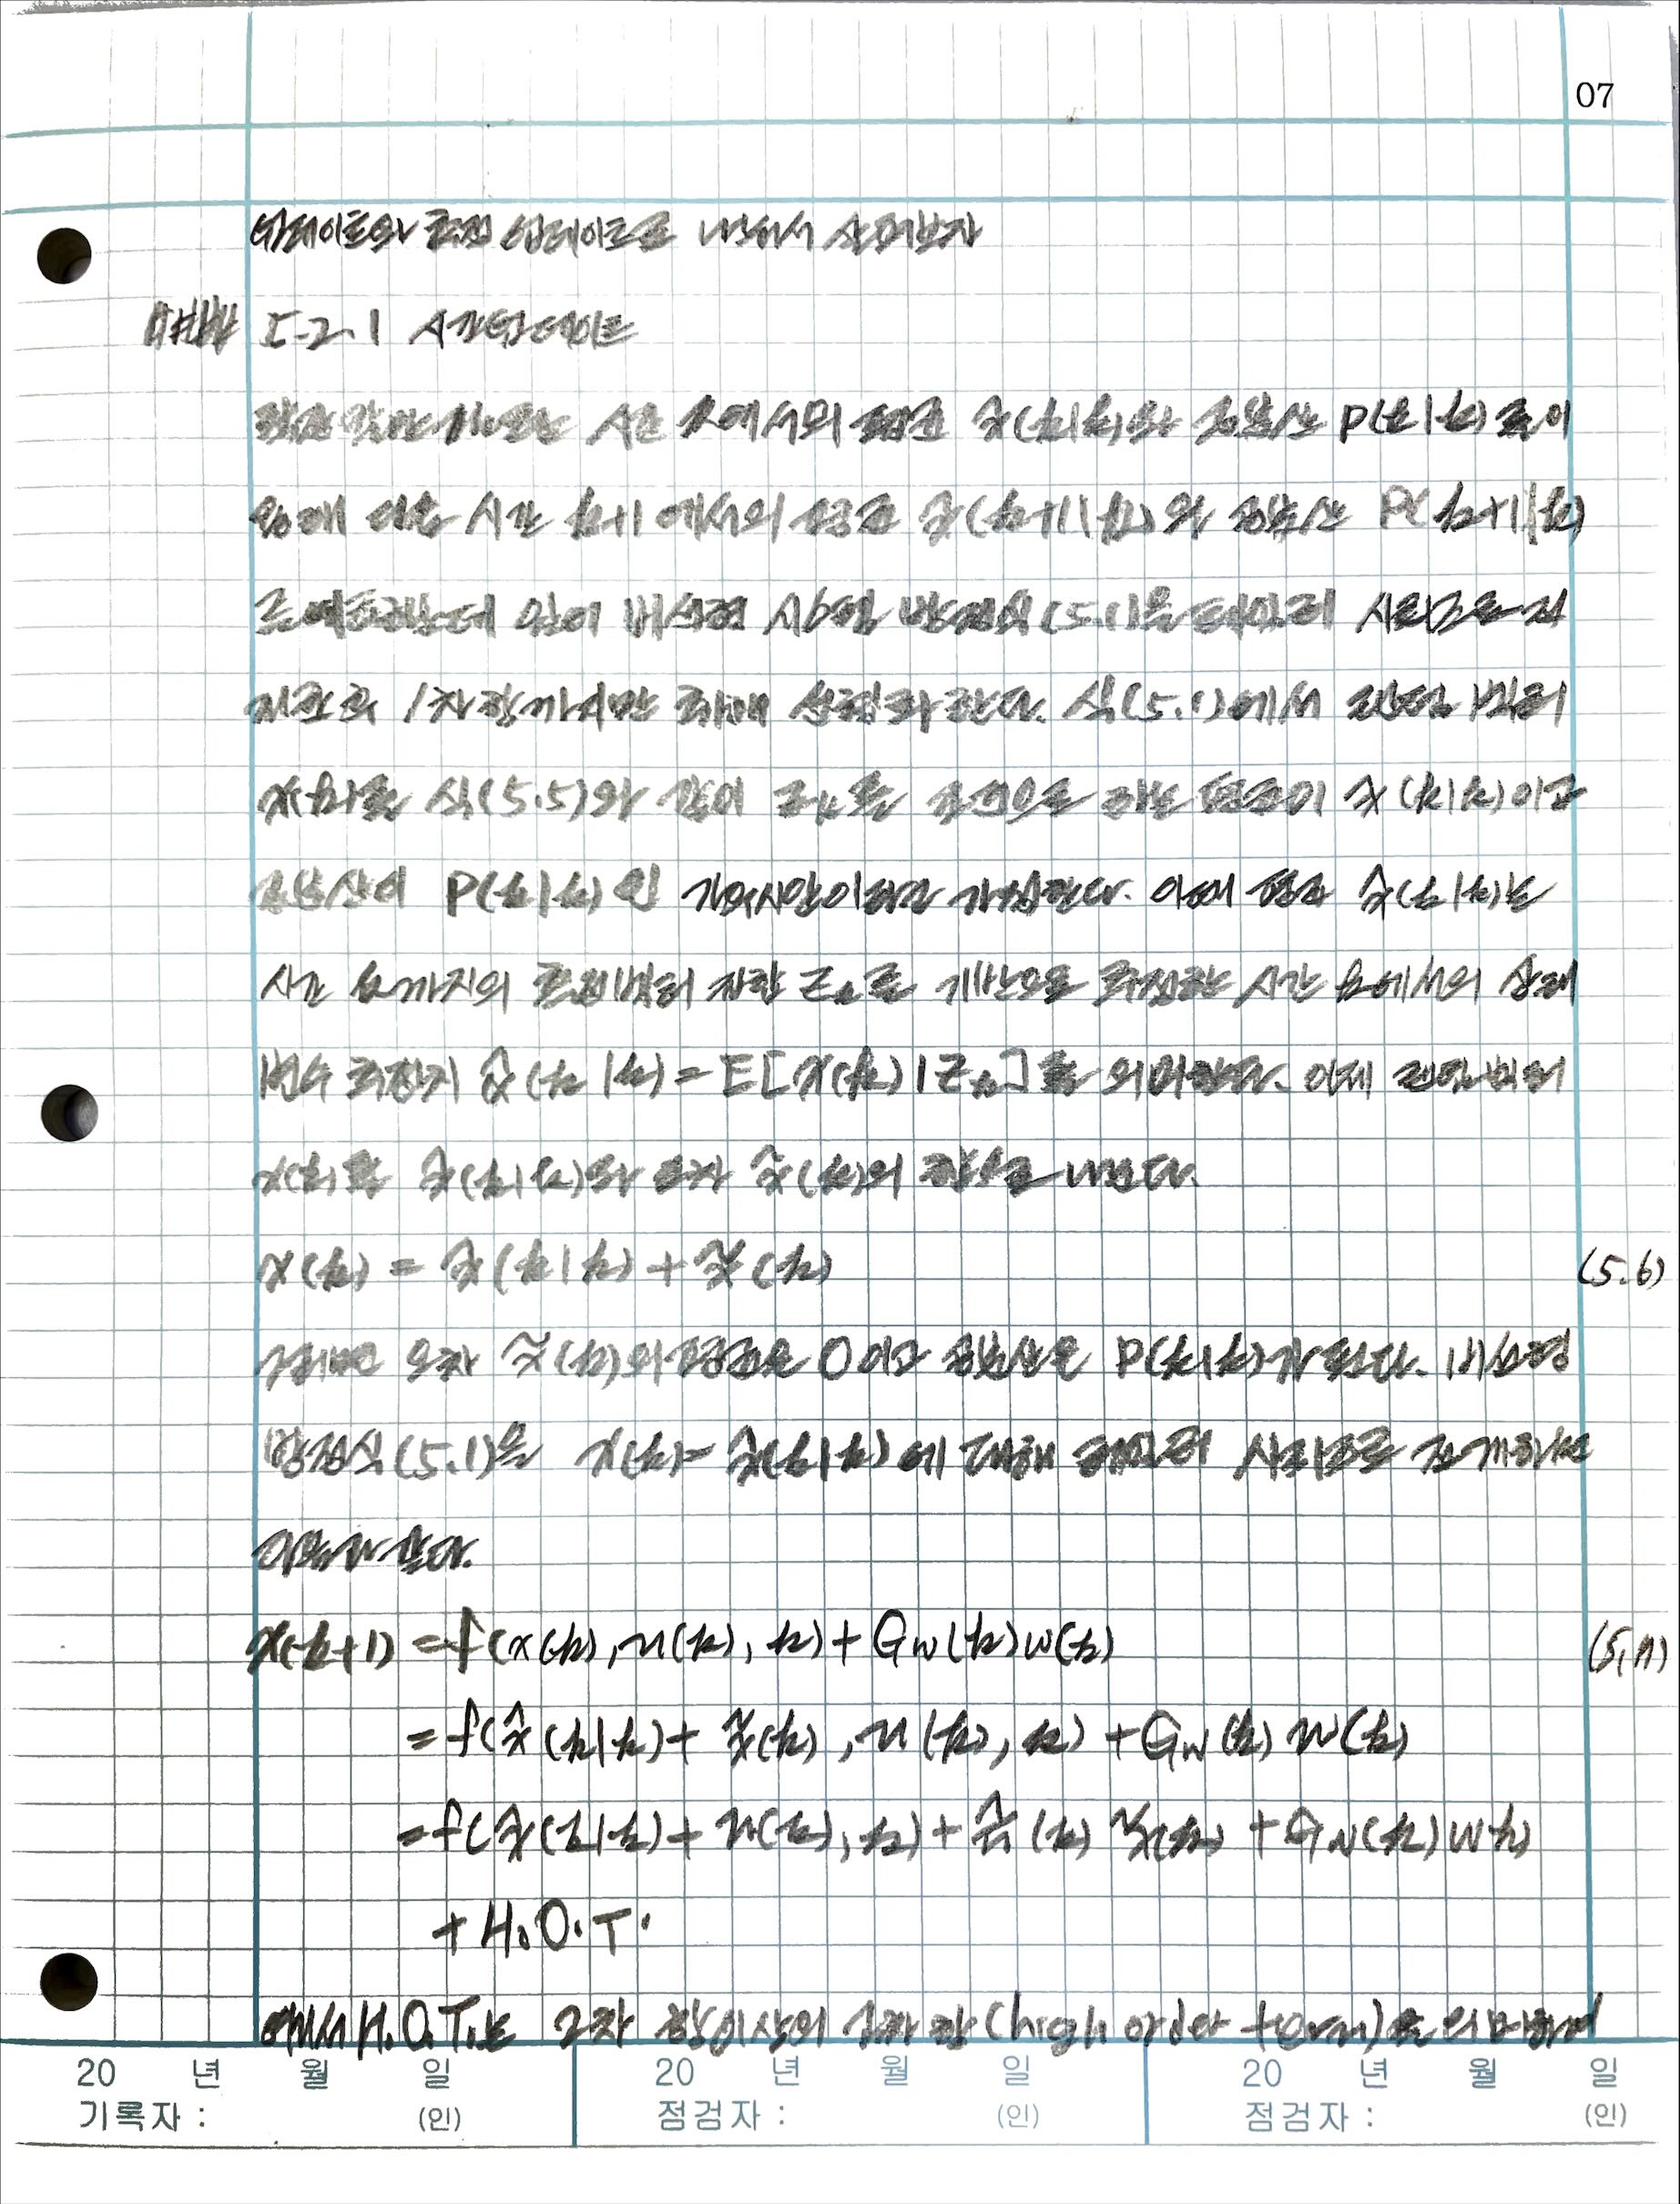 07
업데이트와 측정 업데이트로 나눠서 살펴보자
5.2.1 시간업데이트
시간 k에서의 평균 x̂(k|k)와 공분산 P(k|k)를 이
용해 다음 시간 k+1 에서의 평균 x̂(k+1|k)와 공분산 P(k+1|k)
를 예측하는데 있어 비선형 시스템 방정식(5.1)을 테일러 시리즈로 전
개한 후 1차항까지만 취해 선형화 한다. 식(5.1)에서 랜덤 벡터
x(k)를 식(5.5)와 같이 Zk를 조건으로 하는 평균이 x̂(k|k)이고
공분산이 P(k|k)인 가우시안이라고 가정한다. 이때 평균 x̂(k|k)는
시간 k까지의 측정벡터 집합 Zk를 기반으로 추정한 시간 k에서의 상태
변수 추정치 x̂(k|k)=E[x(k)|Zk]를 의미한다. 이제 랜덤벡터
x(k)를 x̂(k|k)와 오차 x̃(k)의 합으로 나눈다.
x(k) = x̂(k|k) + x̃(k) (5.6)
그러면 오차 x̃(k)의 평균은 0이고 공분산은 P(k|k)가 된다. 비선형
방정식(5.1)을 x(k)=x̂(k|k)에 대해 테일러 시리즈로 전개하면
다음과 같다.
x(k+1) = f(x(k), u(k), k) + Gw(k)w(k)
= f(x̂(k|k) + x̃(k), u(k), k) + Gw(k) w(k)
= f(x̂(k|k) + u(k), k) + F̂(k) x̃(k) + Gw(k) w(k)
+ H.O.T.
여기서 H.O.T.는 2차 항이상의 고차 항(high order term)을 의미하며
20 년 월 일
기록자 : (인)
20 년 월 일
점검자 : (인)
20 년 월 일
점검자 : (인)